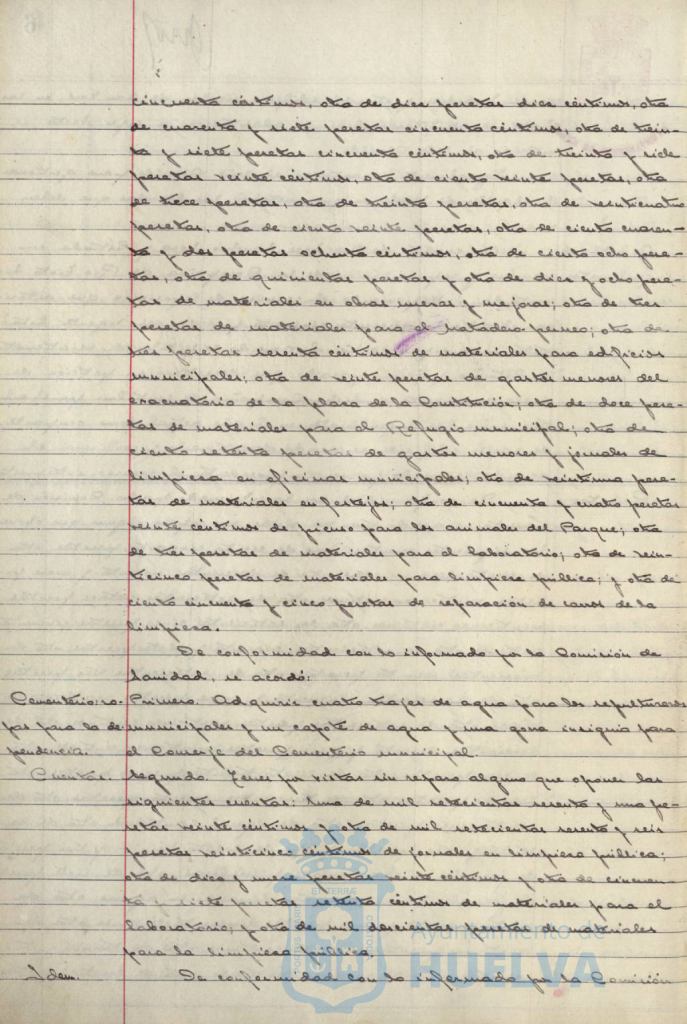 cincuenta céntimos, otra de diez pesetas diez céntimos, otra
de cuarenta y siete pesetas cincuenta céntimos, otra de trein-
ta y siete pesetas cincuenta céntimos, otra de treinta y siete
pesetas veinte céntimos, otra de ciento veinte pesetas, otra
de trece pesetas, otra de treinta pesetas, otra de veinticuatro
pesetas, otra de ciento veinte pesetas, otra de ciento cuaren-
ta y dos pesetas ochenta céntimos, otra de ciento ocho pese-
tas, otra de quinientas pesetas y otra de diez y ocho pese-
tas de materiales en obras nuevas y mejoras; otra de tres
pesetas de materiales para el matadero; otra de
tres pesetas sesenta céntimos de materiales para edificios
municipales; otra de veinte pesetas de gastos menores del
evacuatorio de la plaza de la Constitución; otra de doce pese-
tas de materiales para el Refugio municipal; otra de
ciento setenta pesetas de gastos menores y jornales de
limpieza en oficinas municipales; otra de veintiuna pese-
tas de materiales en festejos; otra de cincuenta y cuatro pesetas
veinte céntimos de pienso para los animales del Parque; otra
de tres pesetas de materiales para el laboratorio; otra de vein-
ticinco pesetas de materiales para limpieza pública; y otra de
ciento cincuenta y cinco pesetas de reparación de carros de la
limpieza.
De conformidad con lo informado por la Comisión de
Sanidad, se acordó:
Cementerio: ro-
pas para la de-
pendencia.
Primero. Adquirir cuatro trajes de agua para los sepultureros
municipales y un capote de agua y una gorra insignia para
el Conserje del Cementerio municipal.
Cuentas.
Segundo. Tener por vistas sin reparo alguno que oponer las
siguientes cuentas: Una de mil setecientas sesenta y una pe-
setas veinte céntimos y otra de mil setecientas sesenta y seis
pesetas veinticinco céntimos de jornales en limpieza pública;
otra de diez y nueve pesetas veinte céntimos y otra de cincuen-
ta y siete pesetas setenta céntimos de materiales para el
laboratorio; y otra de mil doscientas pesetas de materiales
para la limpieza pública.
Idem.
De conformidad con lo informado por la Comisión
Ayuntamiento de
HUELVA